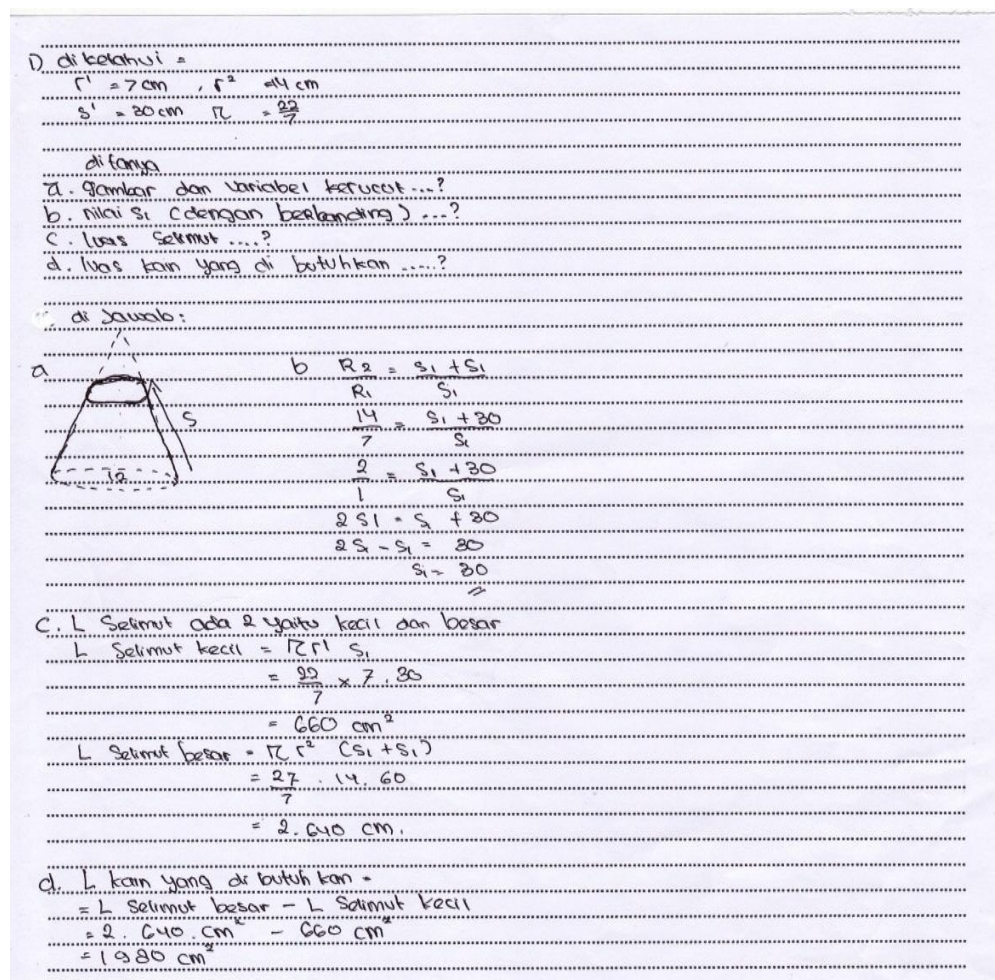 1) di ketahui =
r¹ = 7 cm , r² = 14 cm
s¹ = 30 cm π = 22/7
di tanya
a. gambar dan variabel kerucut ...?
b. nilai S₁ (dengan berbanding) ...?
c. luas Selimut ....?
d. luas kain yang di butuhkan .....?
di Jawab :
a
S
b R2/R₁ = S₁ + S₁/S₁
14/7 = S₁ + 30/S₁
2/1 = S₁ + 30/S₁
2 S1 = S₁ + 30
2 S₁ - S₁ = 30
S₁ = 30
C. L Selimut ada 2 yaitu kecil dan besar
L Selimut kecil = π r¹ S₁
= 22/7 × 7 . 30
= 660 cm²
L Selimut besar = π r² (S₁ + S₁)
= 27/7 . 14. 60
= 2.640 cm.
d. L kain yang di butuh kan =
= L Selimut besar - L Selimut kecil
= 2. 640. cm² - 660 cm²
= 1980 cm²